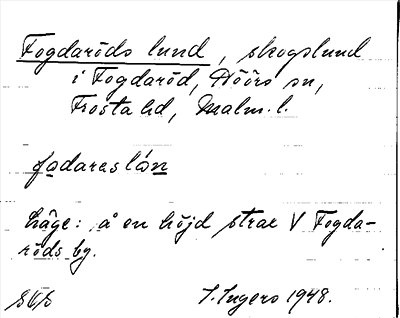 Fogdaröds lund, skogslund
i Fogdaröd, Höörs sn,
Frosta hd, Malm. l.
fodareslón
Läge: å en höjd strax V Fogda-
röds by.
I. Ingers 1948.